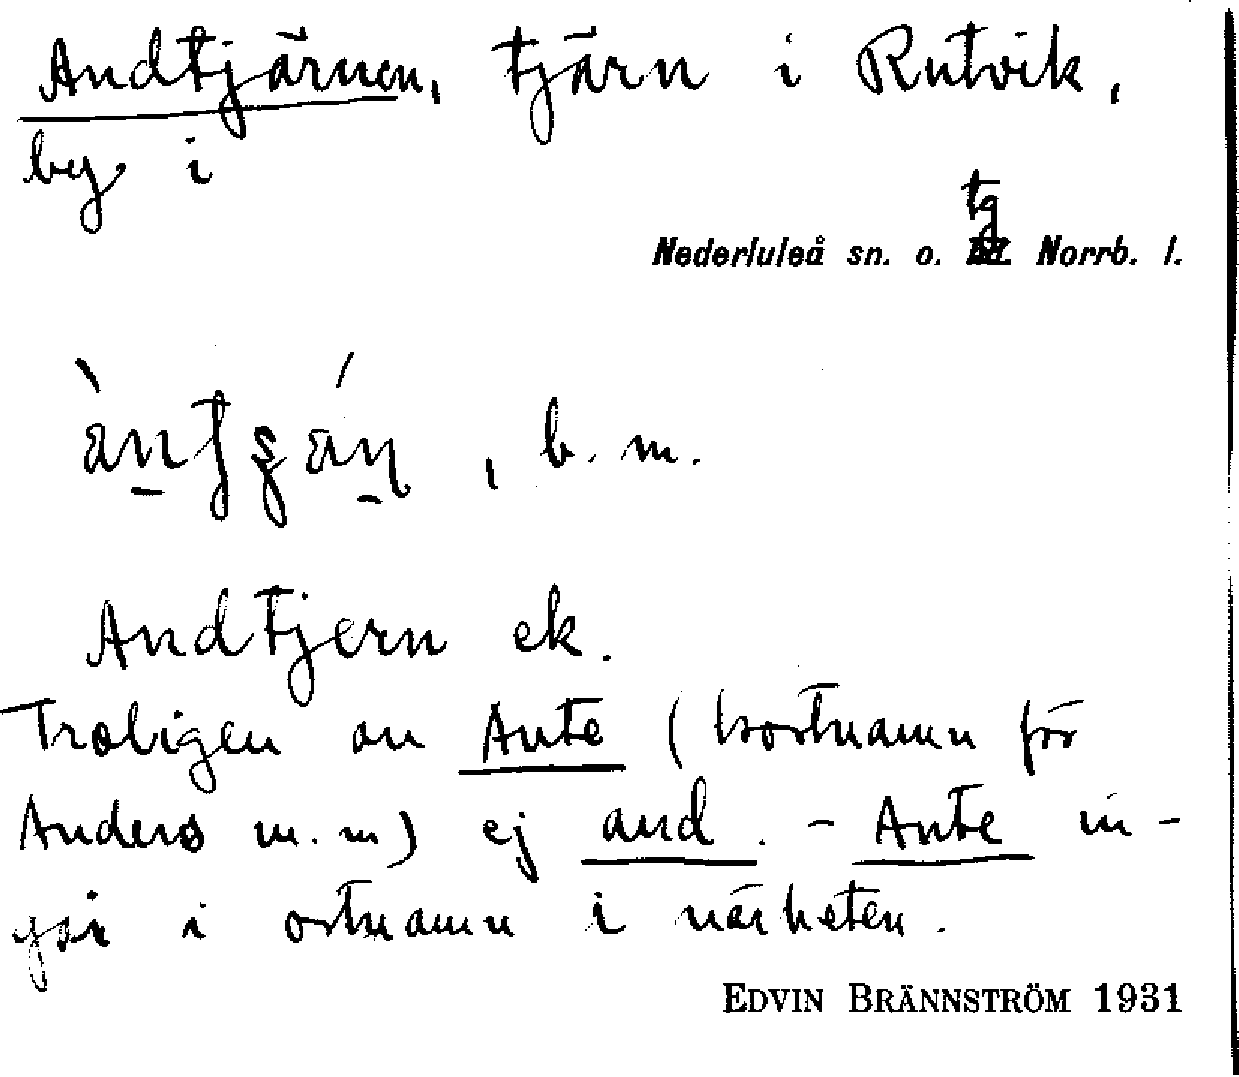 Andtjärnen, tjärn i Rutvik,
by i
tg
Nederluleå sn. o. Norrb. l.
, b. m.
Andtjern ek.
Troligen av Ante (kortnamn för
Anders m. m) ej and. - Ante in-
går i ortnamn i närheten.
EDVIN BRÄNNSTRÖM 1931